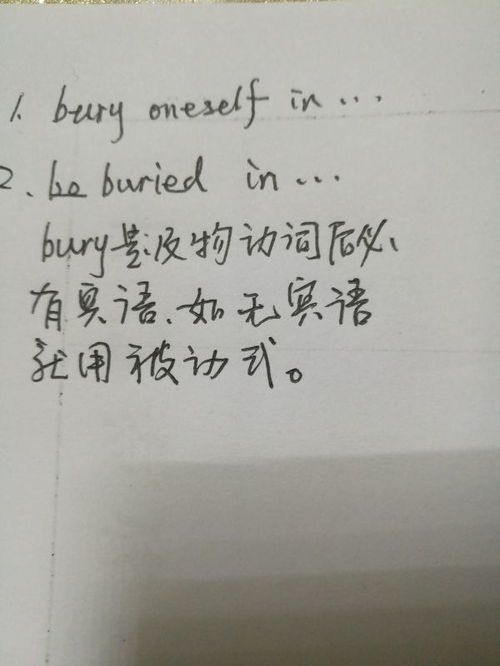 1. bury oneself in...
2. be buried in...
bury是及物动词后必
有宾语、如无宾语
就用被动式。